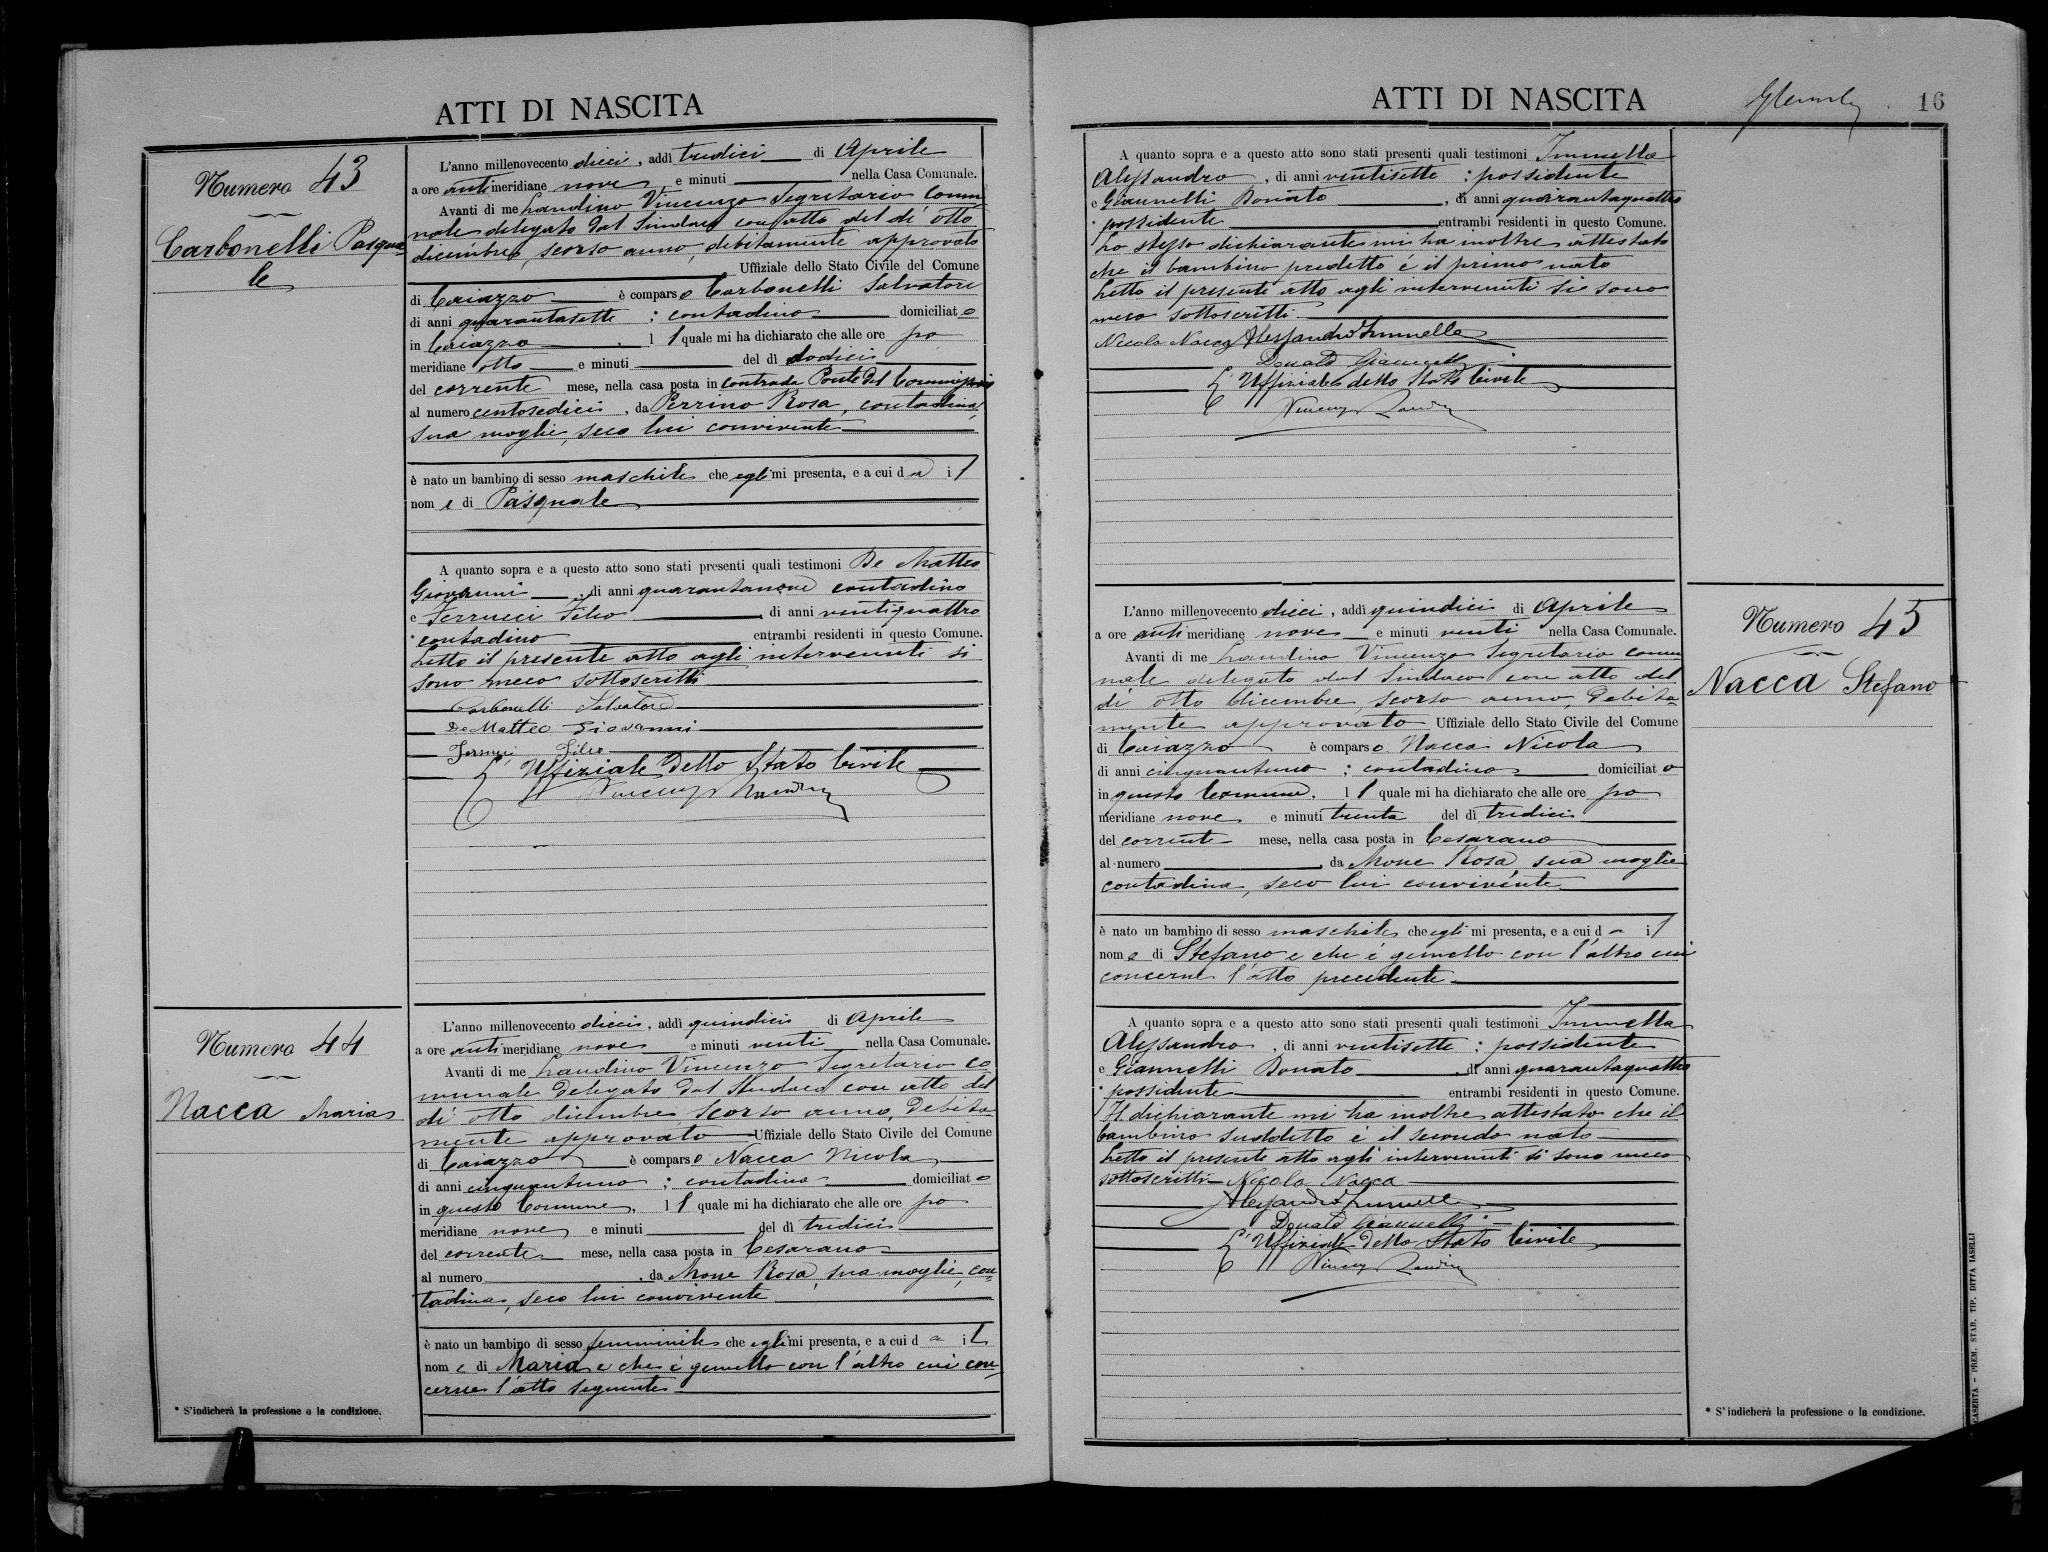 ATTI DI NASCITA
Numero 43
Carbonelli Pasqua-
le
L'anno millenovecento dieci, addì tredici di Aprile
a ore antimeridiane nove e minuti nella Casa Comunale.
Avanti di me Landino Vincenzo Segretario Comu-
nale delegato dal Sindaco con atto del dì otto
dicembre, scorso anno, debitamente approvato
Uffiziale dello Stato Civile del Comune
di Caiazzo è comparso Carbonelli Salvatore
di anni quarantasette ; contadino domiciliato
in Caiazzo, il quale mi ha dichiarato che alle ore po
meridiane otto e minuti del dì dodici
del corrente mese, nella casa posta in contrada Ponte del
al numero centosedici, da Perrino Rosa, contadina,
sua moglie, seco lui convivente
è nato un bambino di sesso maschile che egli mi presenta, e a cui da il
nome di Pasquale
A quanto sopra e a questo atto sono stati presenti quali testimoni De Matteo
Giovanni, di anni quarantanove contadino
e Ferrucci Filio, di anni ventiquattro
* contadino entrambi residenti in questo Comune.
Letto il presente atto agli intervenuti si
sono meco sottoscritti
Carbonelli Salvatore
De Matteo Giovanni
Ferrucci Filio
L'Uffiziale dello Stato Civile
Numero 44
Nacca Maria
L'anno millenovecento dieci, addì quindici di Aprile
a ore antimeridiane nove e minuti venti nella Casa Comunale.
Avanti di me Landino Vincenzo Segretario Co-
munale delegato dal Sindaco con atto del
dì otto dicembre scorso anno, debita
mente approvato Uffiziale dello Stato Civile del Comune
di Caiazzo è comparso Nacca Nicola
di anni cinquantuno ; contadino domiciliato
in questo Comune, il quale mi ha dichiarato che alle ore po
meridiane nove e minuti del dì tredici
del corrente mese, nella casa posta in Cesarano
al numero, da Mone Rosa, sua moglie, con-
tadina, seco lui convivente
è nato un bambino di sesso femminile che egli mi presenta, e a cui da il
nome di Maria e che è gemello con l'altro cui con-
cerne l'atto seguente
* S'indicherà la professione o la condizione.
ATTI DI NASCITA
16
A quanto sopra e a questo atto sono stati presenti quali testimoni Immella
Alessandro, di anni ventisette ; possidente
e Giannelli Donato, di anni quarantaquattro
* possidente entrambi residenti in questo Comune.
Lo stesso dichiarante mi ha inoltre attestato
che il bambino predetto è il primo nato
Letto il presente atto agli intervenuti si sono
meco sottoscritti
Nicola Nacca Alessandro Immella
Donato Giannelli
L'Uffiziale dello Stato Civile
L'anno millenovecento dieci, addì quindici di Aprile
a ore antimeridiane nove e minuti venti nella Casa Comunale.
Avanti di me Landino Vincenzo Segretario comu
nale delegato dal Sindaco con atto del
dì otto dicembre, scorso anno, debita-
mente approvato Uffiziale dello Stato Civile del Comune
di Caiazzo è comparso Nacca Nicola
di anni cinquantuno ; contadino domiciliato
in questo Comune, il quale mi ha dichiarato che alle ore po
meridiane nove e minuti trenta del dì tredici
del corrente mese, nella casa posta in Cesarano
al numero, da Mone Rosa, sua moglie
contadina, seco lui convivente
è nato un bambino di sesso maschile che egli mi presenta, e a cui da il
nome di Stefano e che è gemello con l'altro cui
concerne l'atto precedente
A quanto sopra e a questo atto sono stati presenti quali testimoni Immella
Alessandro, di anni ventisette ; possidente
e Giannelli Donato, di anni quarantaquattro
* possidente entrambi residenti in questo Comune.
Il dichiarante mi ha inoltre attestato che il
bambino suddetto è il secondo nato
Letto il presente atto agli intervenuti si sono meco
sottoscritti Nicola Nacca
Alessandro Immella
Donato Giannelli
L'Uffiziale dello Stato Civile
Numero 45
Nacca Stefano
* S'indicherà la professione o la condizione.
CASERTA - PREM. STAB. TIP. DITTA IASELLI